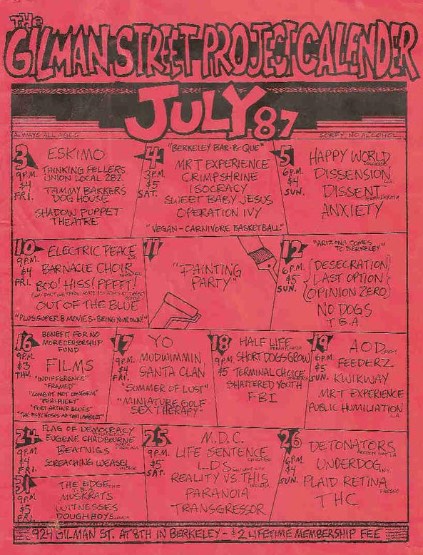 THE
GILMAN STREET PROJECT CALENDER
JULY 87
ALWAYS ALL AGES
SORRY, NO ALCOHOL
3
9 P.M.
$4
FRI.
ESKIMO
THINKING FELLERS
UNION LOCAL 282
TAMMY BAKKERS
DOG HOUSE
SHADOW PUPPET
THEATRE
4
3 PM.
$5
SAT.
"BERKELEY BAR-B-QUE"
MR T EXPERIENCE
CRIMPSHRINE
ISOCRACY
SWEET BABY JESUS
OPERATION IVY
"VEGAN-CARNIVORE BASKETBALL"
5
6 P.M.
$4
SUN.
HAPPY WORLD
DISSENSION
DISSENT
ANXIETY
10
9 P.M.
$4
FRI.
ELECTRIC PEACE
BARNACLE CHOIR
BOO! HISS! PFFFT!
OUT OF THE BLUE
"PLUS SUPER 8 MOVIES-BRING YOUR OWN"
11
"PAINTING
PARTY"
12
6 P.M.
$5
SUN.
"ARIZONA COMES
TO BERKELEY"
DESECRATION
LAST OPTION
OPINION ZERO
NO DOGS
T.B.A.
16
9 PM.
$3
THU.
BENEFIT FOR NO
MORE CENSORSHIP
FUND
FILMS
"INDIFFERENCE"
"FRAMED"
17
9 P.M.
$4
FRI.
YO
MUDWIMMIN
SANTA CLAN
"SUMMER OF LUST"
"MINIATURE GOLF
SEX THERAPY"
18
9 P.M.
$5
SAT.
HALF LIFE
SHORT DOGS GROW
TERMINAL CHOICE
SHATTERED YOUTH
F.B.I.
19
6 P.M.
$5
SUN.
A.O.D.
FEEDERZ
KWIKWAY
MR T EXPERIENCE
PUBLIC HUMILIATION
24
9 P.M.
$4
FRI.
FLAG OF DEMOCRACY
EUGENE CHADBOURNE
BEATNIGS
SCREACHING WEASEL
25
9 P.M.
$5
SAT.
M.D.C.
LIFE SENTENCE
L.D.S.
REALITY VS THIS
PARANOIA
TRANSGRESSOR
26
6 P.M.
$4
SUN.
DETONATORS
UNDERDOG
PLAID RETINA
T.H.C.
31
9 P.M.
$4
FRI.
THE EDGE
MUSKRATS
WITNESSES
DOUGHBOYS
924 GILMAN ST. AT 8TH IN BERKELEY - $2 LIFETIME MEMBERSHIP FEE